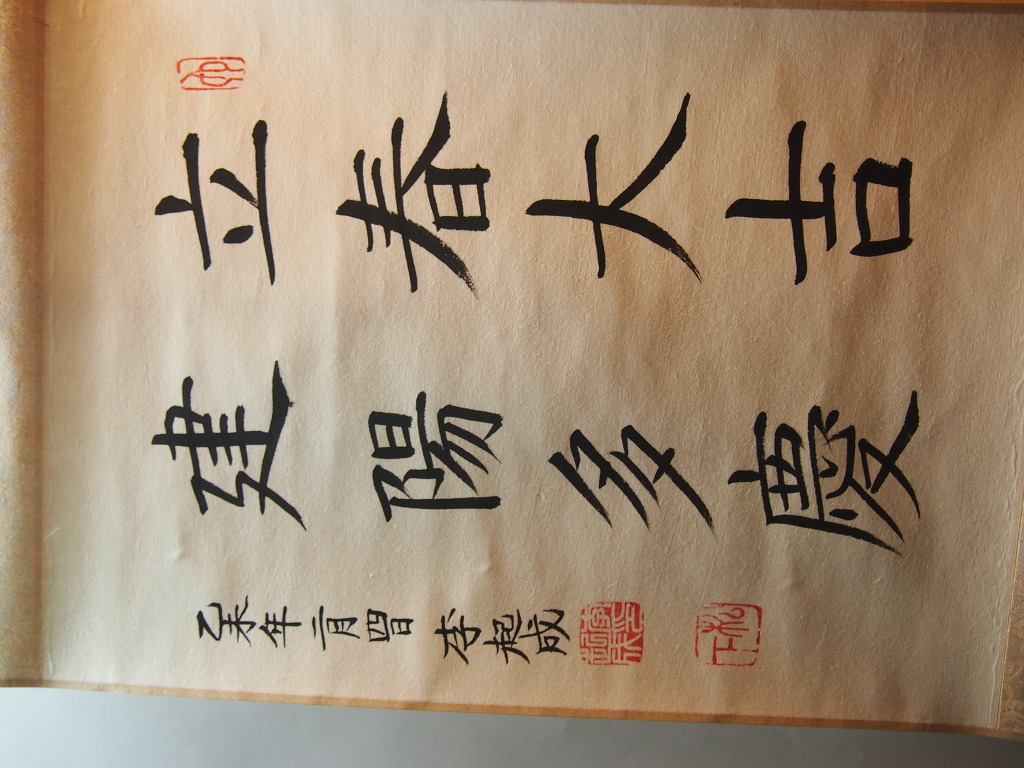 立春大吉
建陽多慶
乙未年二月四日 李起成